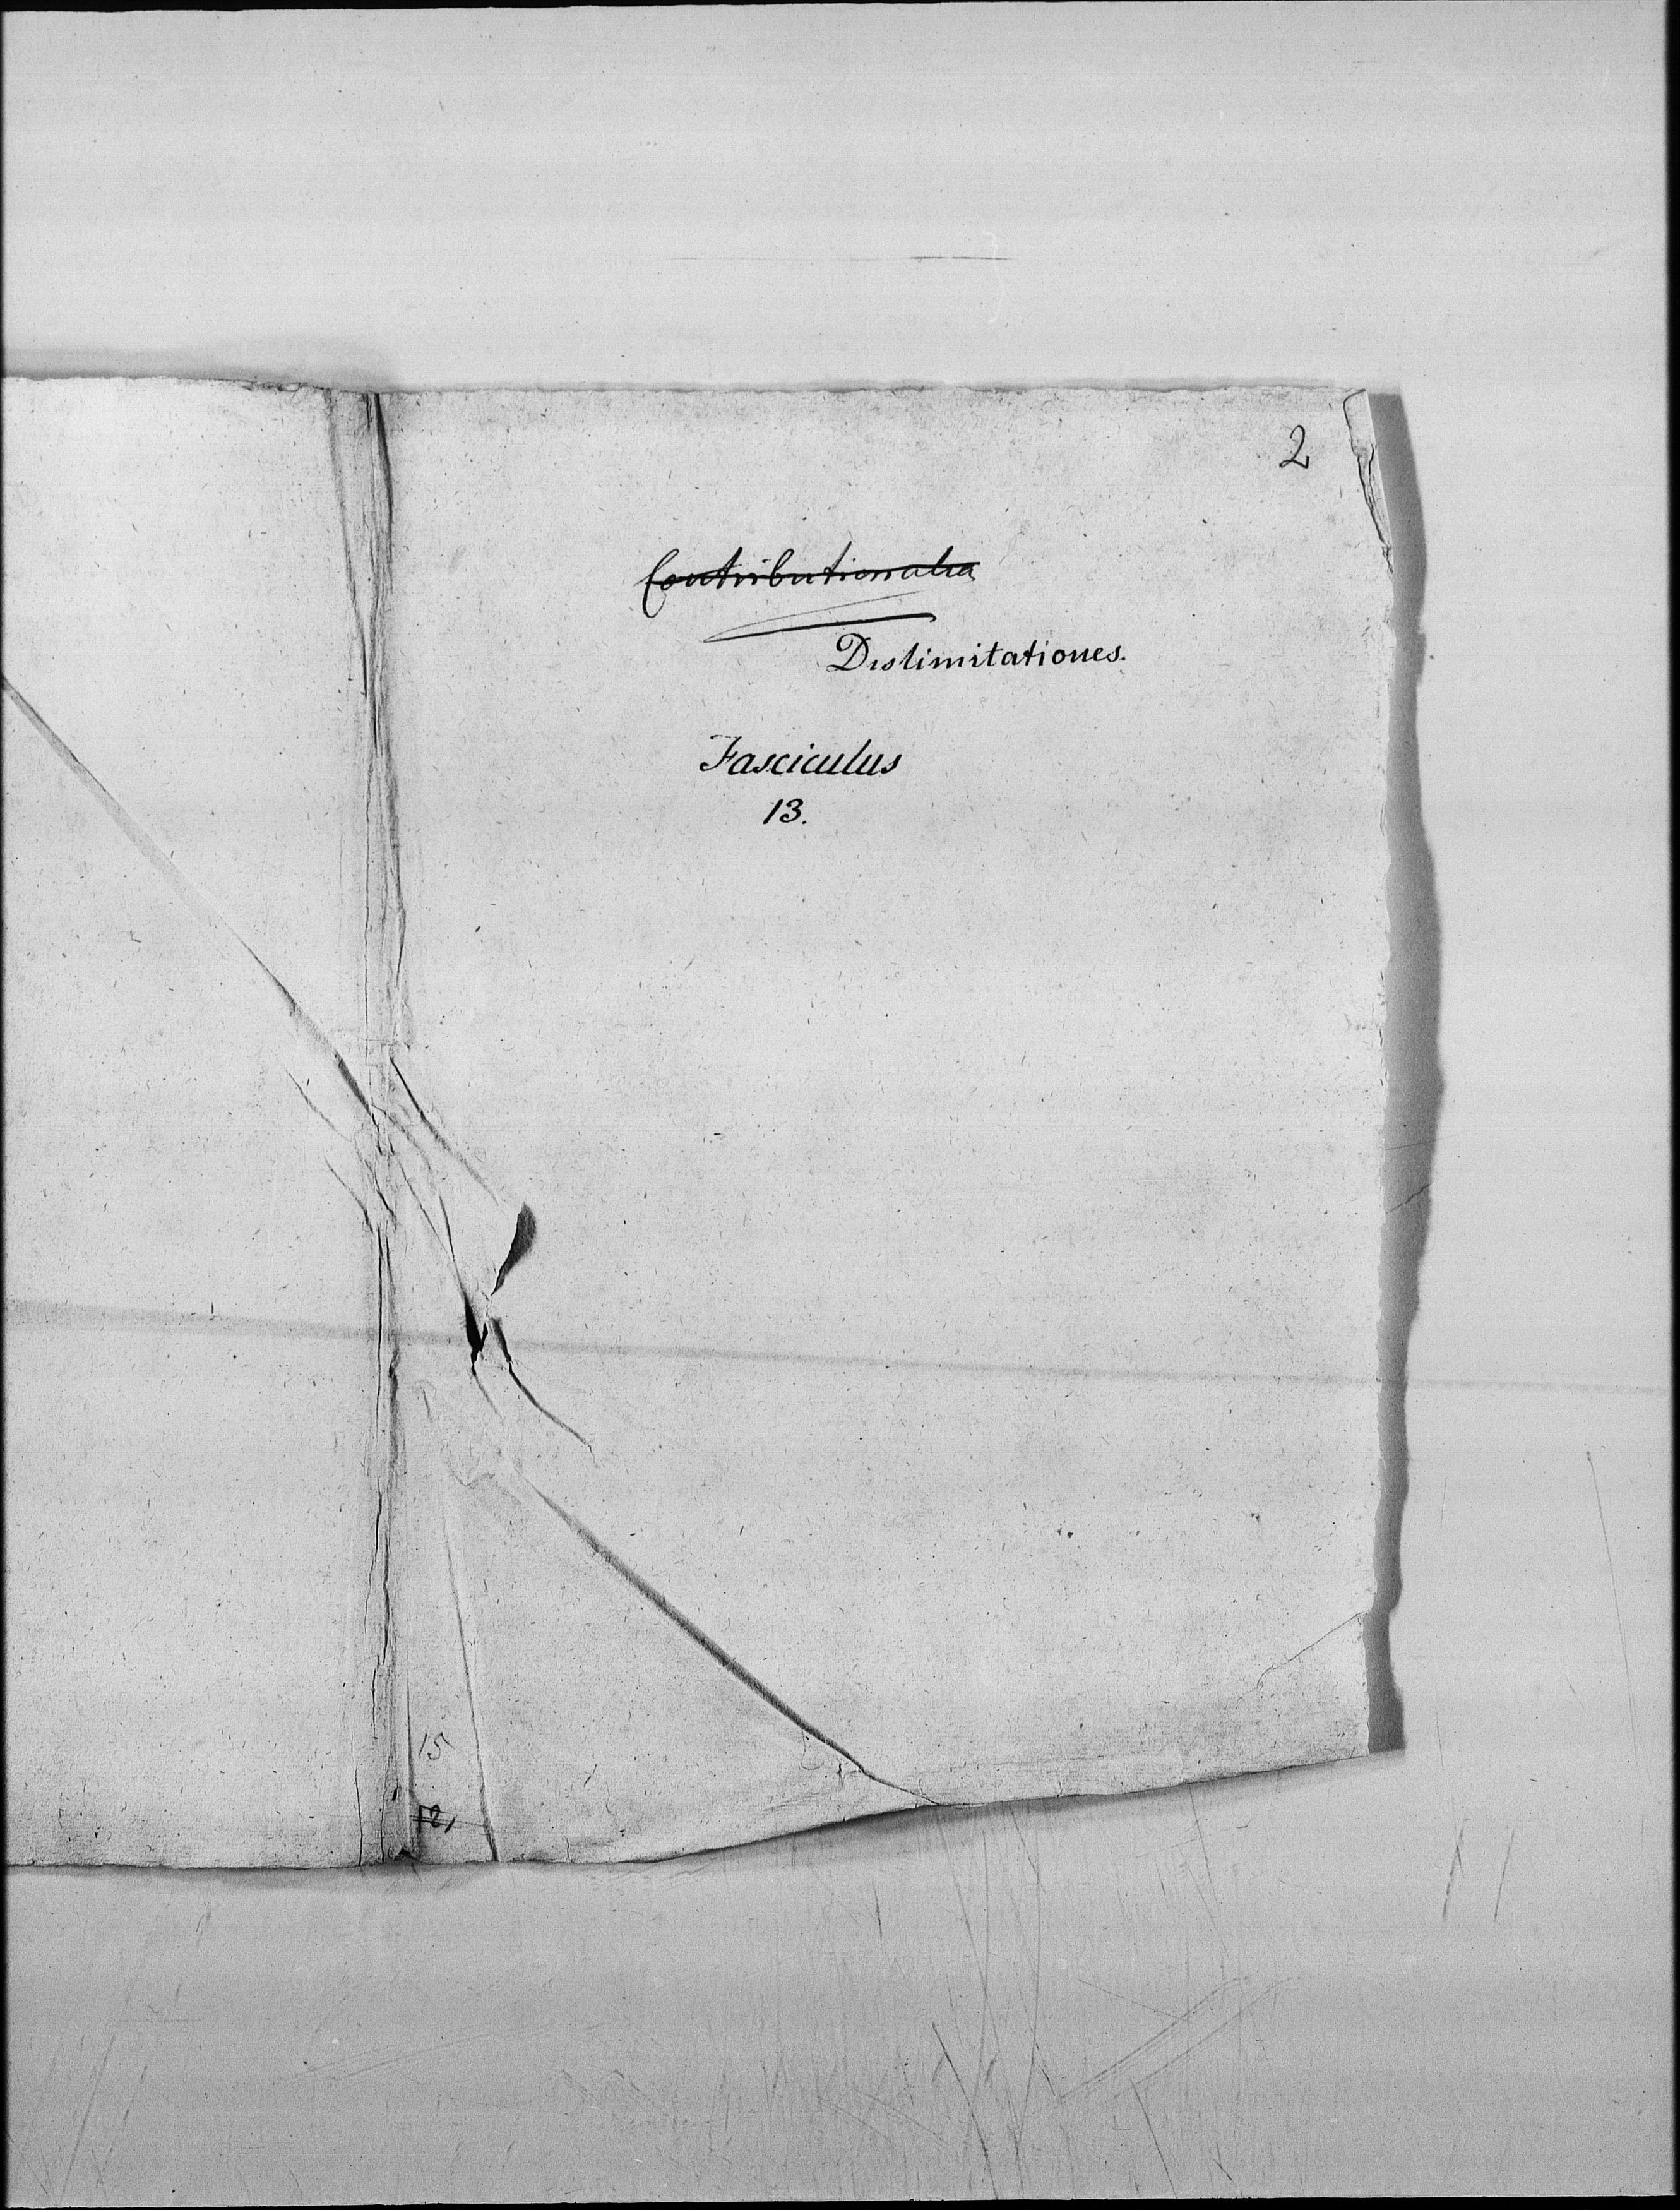 2
Contributionalia
Dislimitationes.
Fasciculus
13.
15
12,